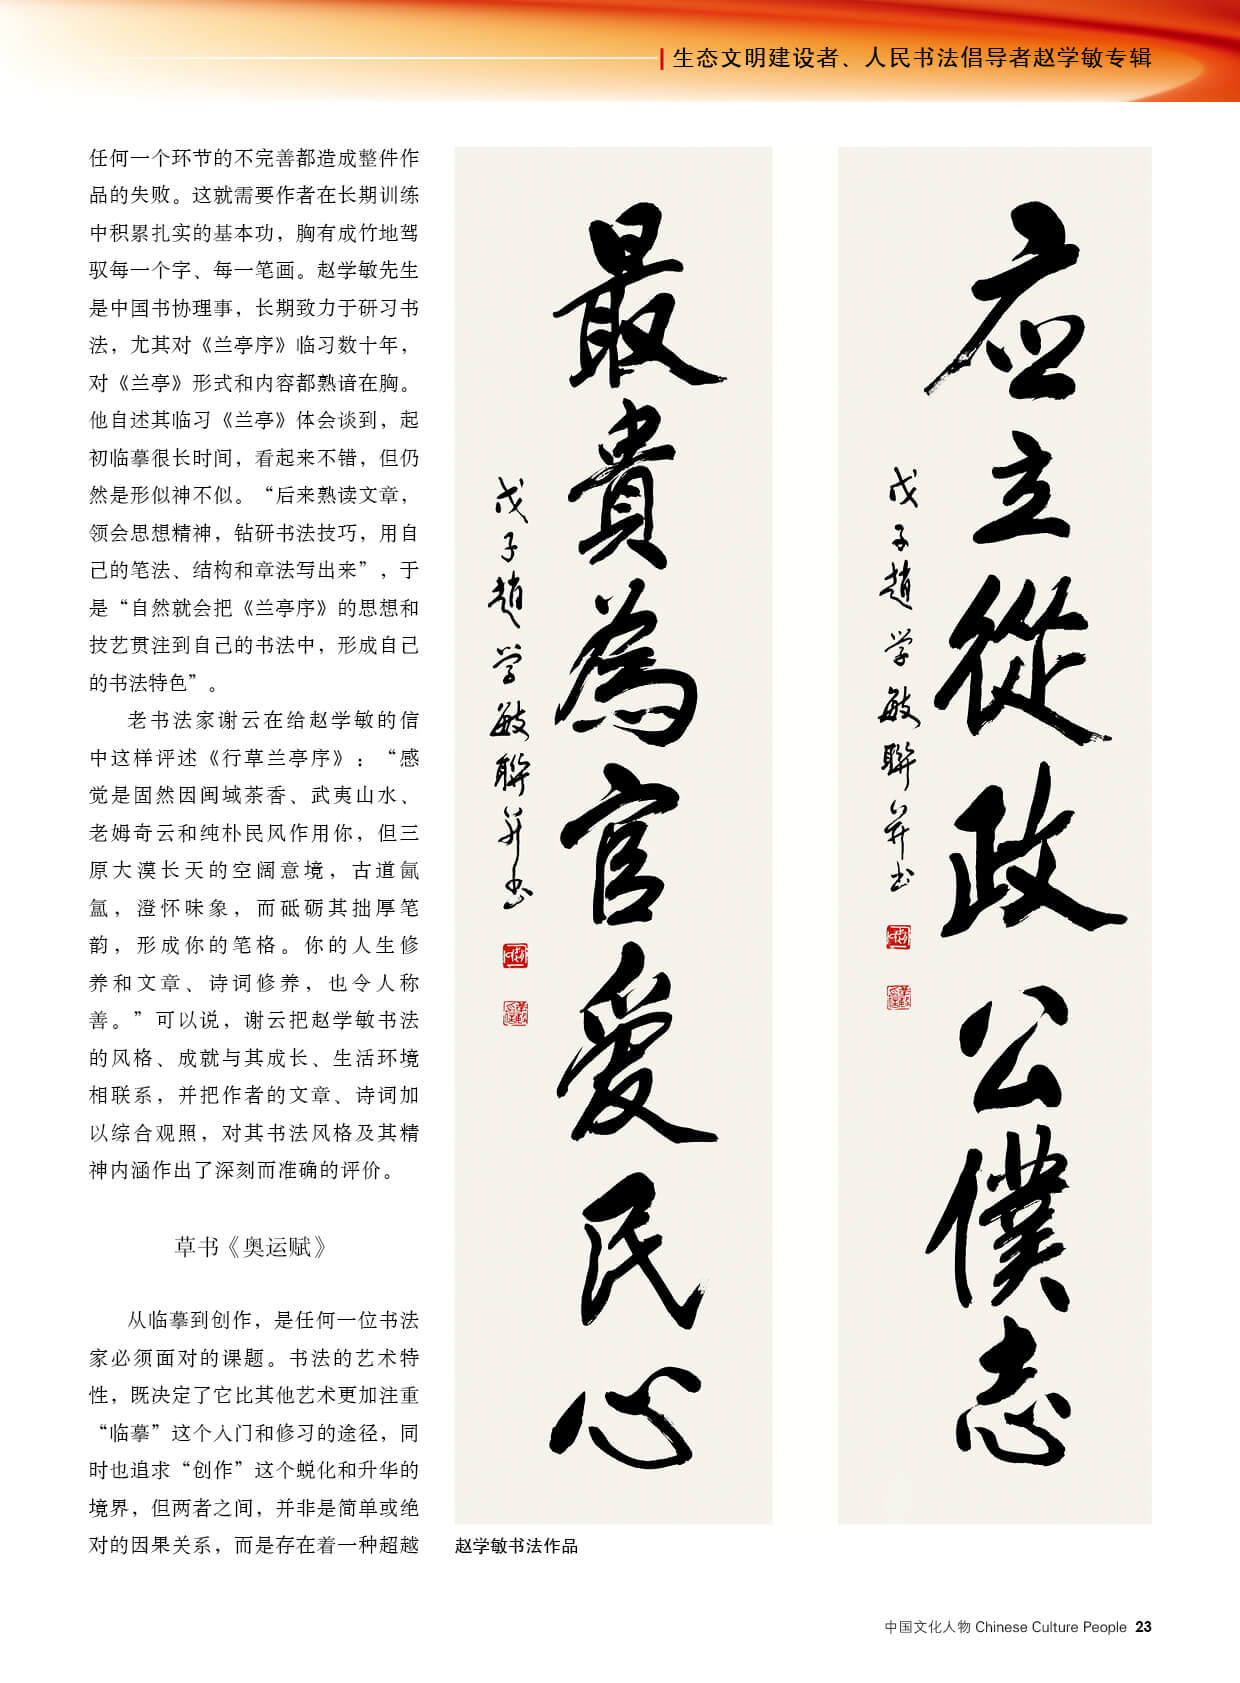 生态文明建设者、人民书法倡导者赵学敏专辑
任何一个环节的不完善都造成整件作
品的失败。这就需要作者在长期训练
中积累扎实的基本功，胸有成竹地驾
驭每一个字、每一笔画。赵学敏先生
是中国书协理事，长期致力于研习书
法，尤其对《兰亭序》临习数十年，
对《兰亭》形式和内容都熟谙在胸。
他自述其临习《兰亭》体会谈到，起
初临摹很长时间，看起来不错，但仍
然是形似神不似。“后来熟读文章，
领会思想精神，钻研书法技巧，用自
己的笔法、结构和章法写出来”，于
是“自然就会把《兰亭序》的思想和
技艺贯注到自己的书法中，形成自己
的书法特色”。
老书法家谢云在给赵学敏的信
中这样评述《行草兰亭序》：“感
觉是固然因闽域茶香、武夷山水、
老姆奇云和纯朴民风作用你，但三
原大漠长天的空阔意境，古道氤
氲，澄怀味象，而砥砺其拙厚笔
韵，形成你的笔格。你的人生修
养和文章、诗词修养，也令人称
善。”可以说，谢云把赵学敏书法
的风格、成就与其成长、生活环境
相联系，并把作者的文章、诗词加
以综合观照，对其书法风格及其精
神内涵作出了深刻而准确的评价。
草书《奥运赋》
从临摹到创作，是任何一位书法
家必须面对的课题。书法的艺术特
性，既决定了它比其他艺术更加注重
“临摹”这个入门和修习的途径，同
时也追求“创作”这个蜕化和升华的
境界，但两者之间，并非是简单或绝
对的因果关系，而是存在着一种超越
应立從政公僕志
戊子趙学敏聯并书
最貴為官爱民心
戊子趙学敏聯并书
赵学敏书法作品
中国文化人物 Chinese Culture People 23